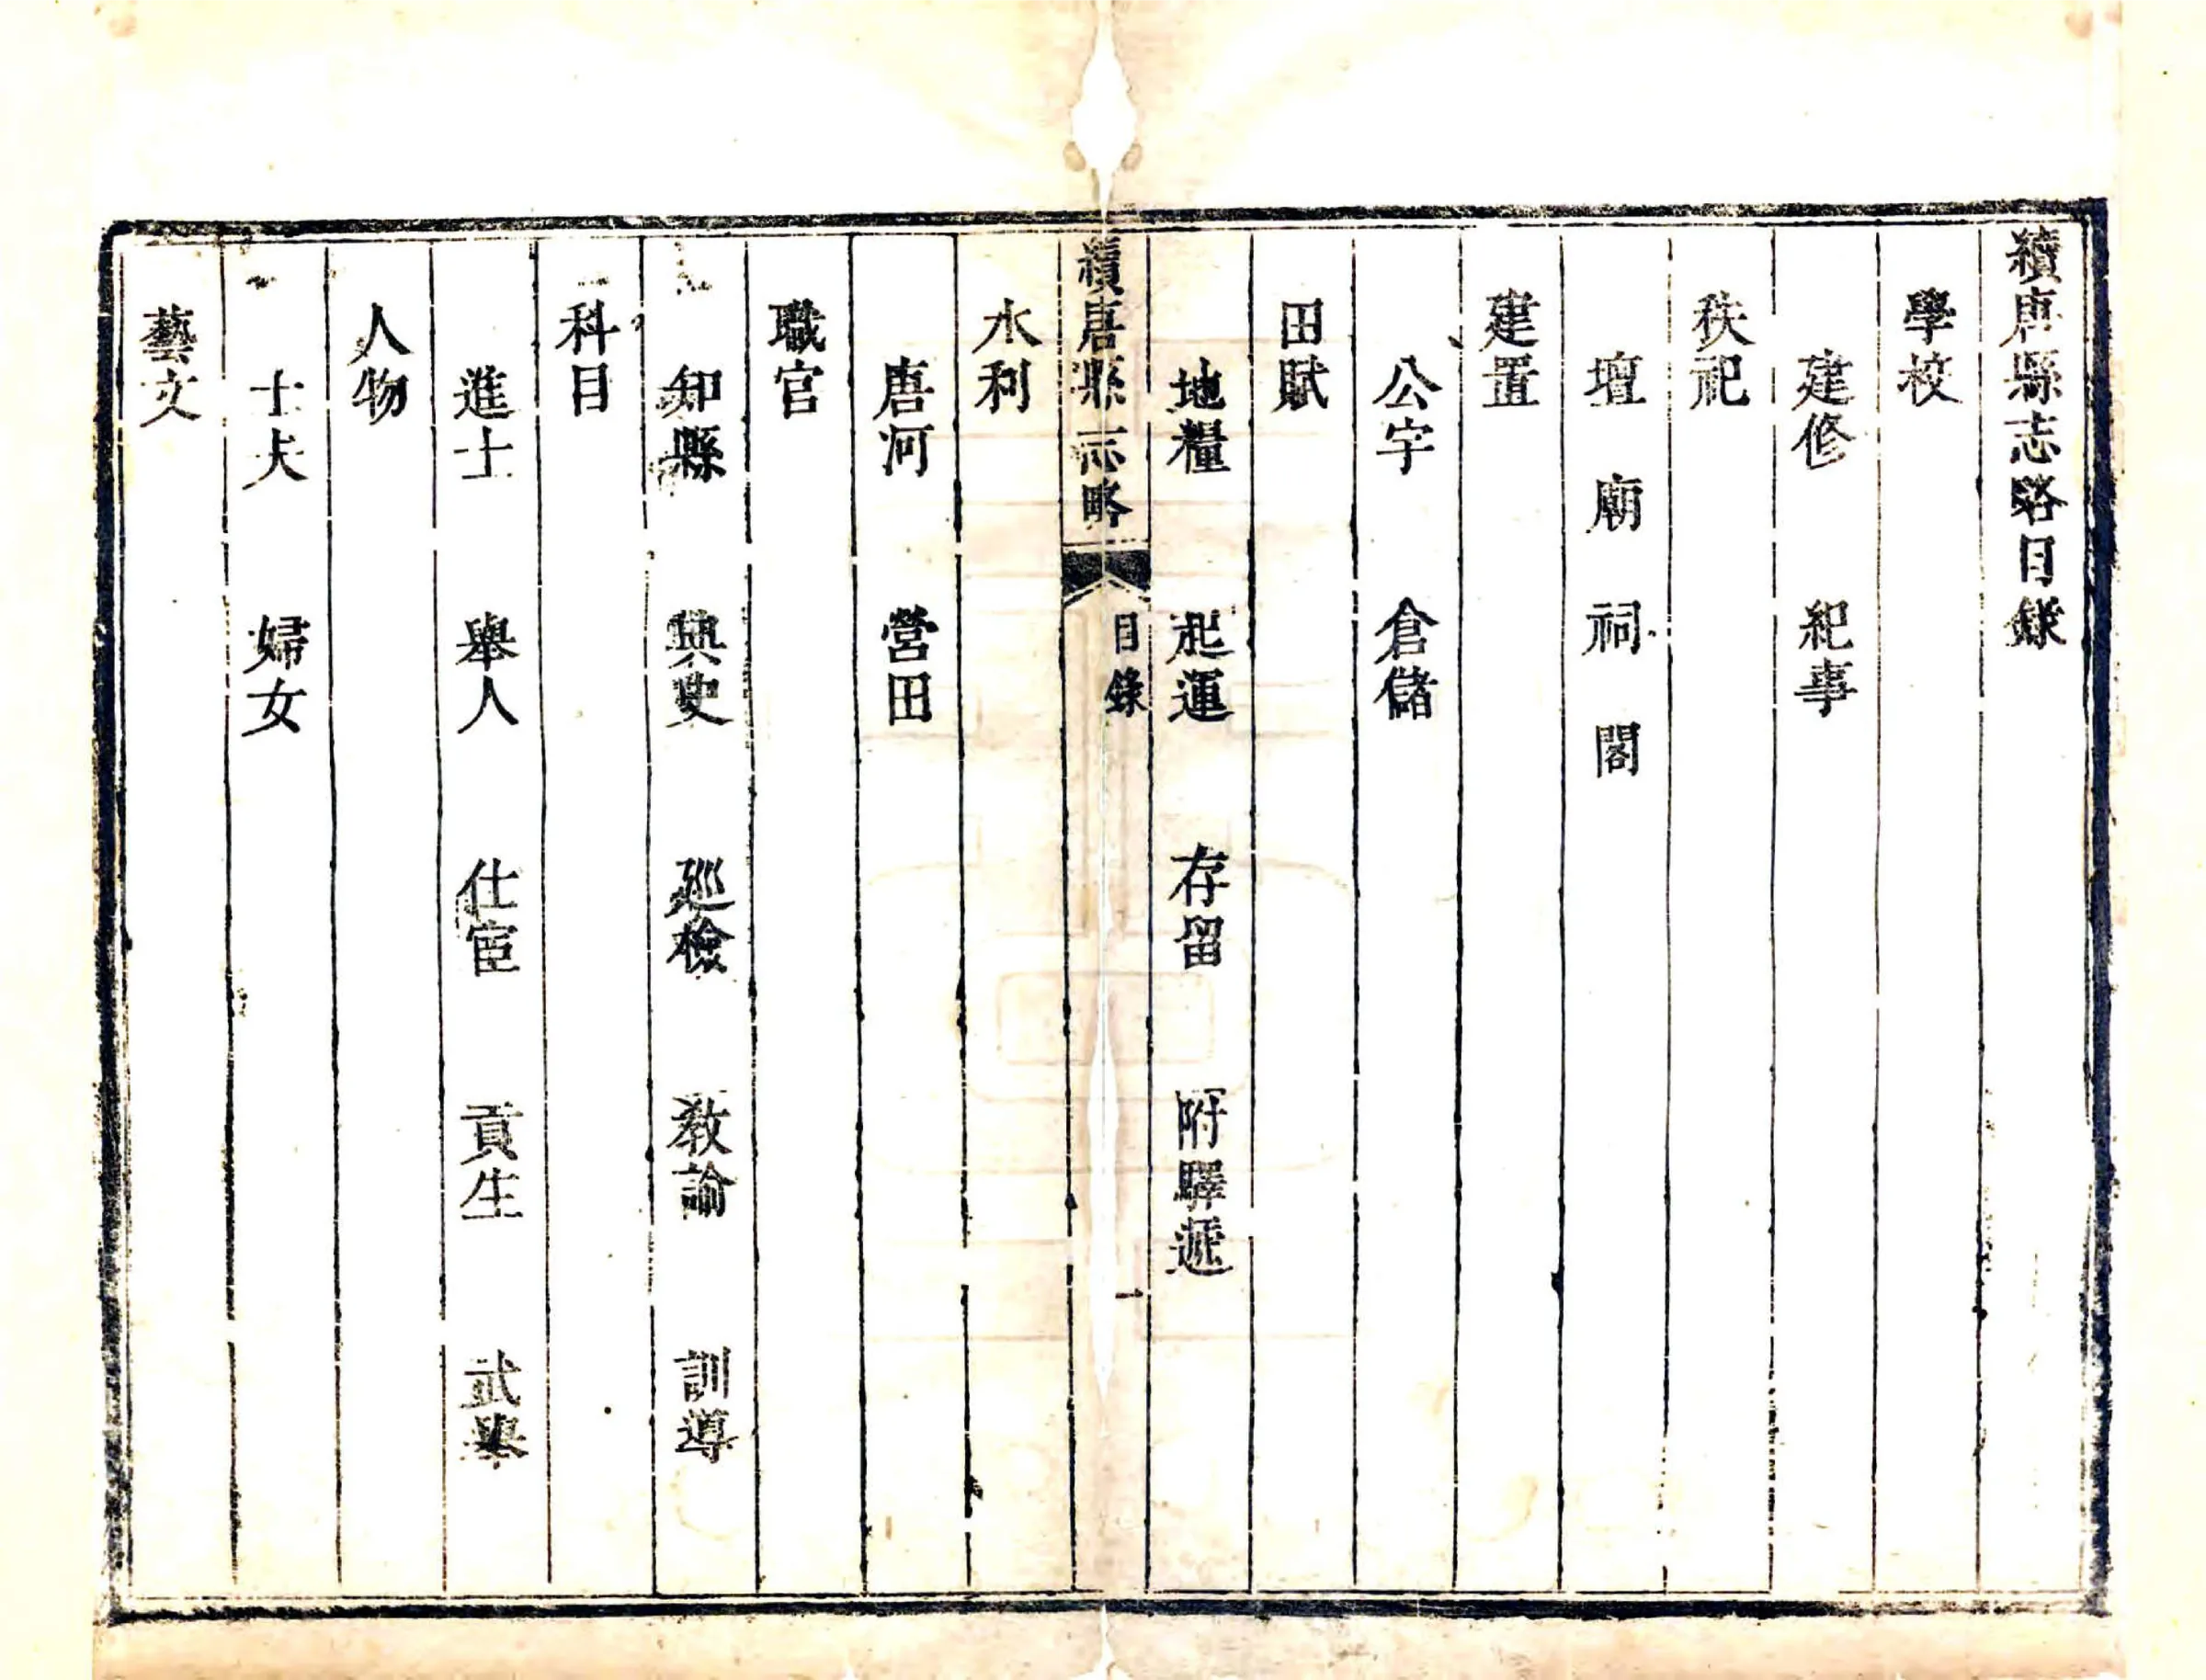 續唐縣志略目錄
學校
建修 紀事
秩祀
壇 廟 祠 閣
建置
公宇 倉儲
田賦
地糧 起運 存留 附驛遞
續唐縣志略 目錄 一
水利
唐河 營田
職官
知縣 典史 巡檢 教諭 訓導
科目
進士 舉人 仕宦 貢生 武舉
人物
士夫 婦女
藝文